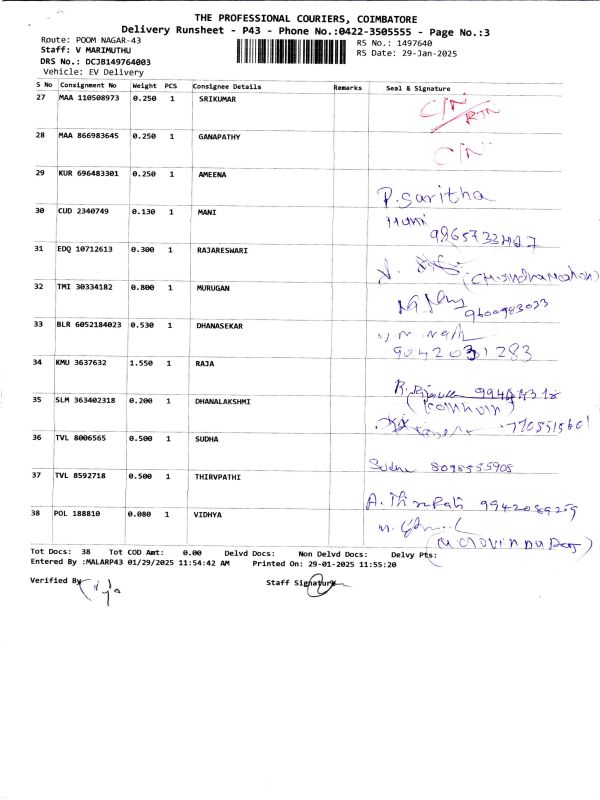 THE PROFESSIONAL COURIERS, COIMBATORE
Delivery Runsheet - P43 - Phone No.:0422-3505555 - Page No.:3
Route: POOM NAGAR-43
RS No.: 1497640
Staff: V MARIMUTHU
RS Date: 29-Jan-2025
DRS No.: DCJB149764003
Vehicle: EV Delivery
S No Consignment No Weight PCS Consignee Details Remarks Seal & Signature
27 MAA 110508973 0.250 1 SRIKUMAR C/N RTN
28 MAA 866983645 0.250 1 GANAPATHY C/N
29 KUR 696483301 0.250 1 AMEENA P. Saritha
30 CUD 2340749 0.130 1 MANI
31 EDQ 10712613 0.300 1 RAJARESWARI
32 TMI 30334182 0.800 1 MURUGAN 9600983033
33 BLR 6052184023 0.530 1 DHANASEKAR 9042031283
34 KMU 3637632 1.550 1 RAJA
35 SLM 363402318 0.200 1 DHANALAKSHMI
36 TVL 8006565 0.500 1 SUDHA Sudha
37 TVL 8592718 0.500 1 THIRVPATHI A. Thirupati
38 POL 188810 0.080 1 VIDHYA
Tot Docs: 38 Tot COD Amt: 0.00 Delvd Docs: Non Delvd Docs: Delvy Pts:
Entered By :MALARP43 01/29/2025 11:54:42 AM Printed On: 29-01-2025 11:55:20
Verified By
Staff Signature